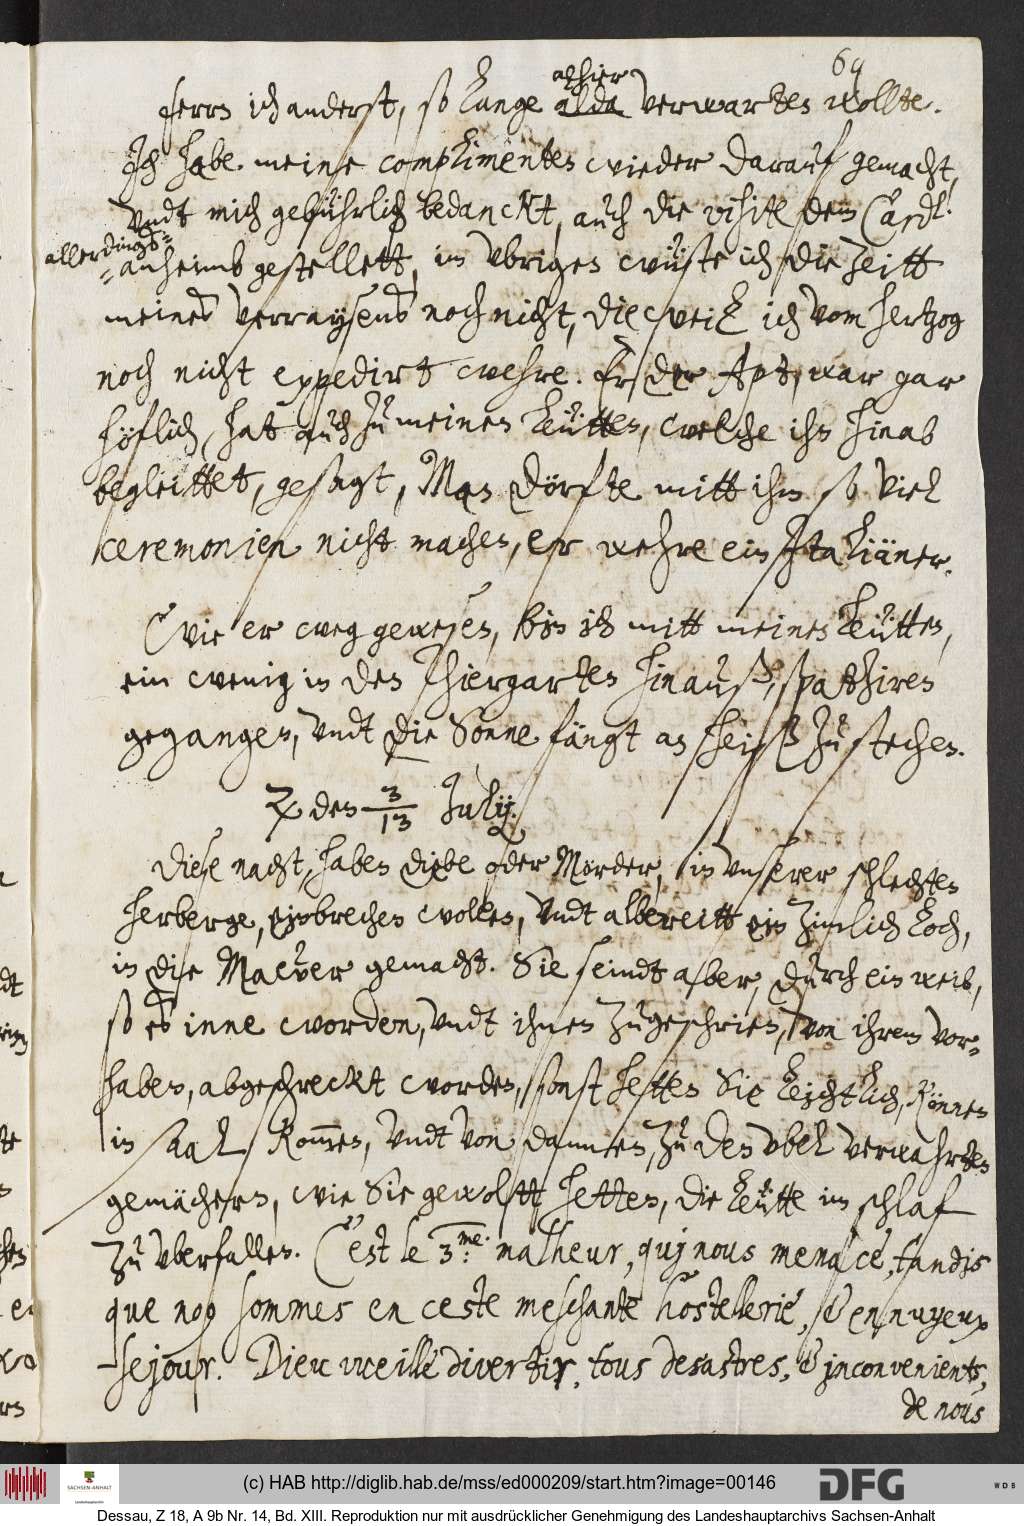 64
ferrn ich anderst, so lange alhier alda verwarten wollte.
Ich habe meine complimenten wieder darauf gemacht,
vndt mich gebührlich bedanckt, auch die visite dem Card.l
allerdings=
=anheimb gestellett, im vbrigen wüste ich die zeitt
meines verraysens noch nicht, dieweil ich vom hertzog
noch nicht expedirt wehre. Er der Apt, war gar
höflich, hat auch zu meinen leütten, welche ihn hinab
begleittet, gesagt, Man dörfte mitt ihm so viel
ceremonien nicht machen, er wehre ein Italiäner.
Wie er weg gewesen, bin ich mitt meinen leütten,
ein wenig in den Thiergarten hinauß, spatziren
gegangen, vndt die Sonne fängt an heiß zu stechen.
♃ den 3/13 Julij.
Diese nacht, haben diebe oder Mörder, in vnserer schlechten
herberge, einbrechen wollen, vndt albereitt ein zimlich loch,
in die Mawer gemacht. Sie seindt aber, durch ein weib,
so es inne worden, vndt ihnen zugeschrien, von ihrem vor=
haben, abgeschreckt worden, sonst hetten Sie leichtlich, können
in Saal kommen, vndt von dannen, zu den vbel verwahrten
gemächern, wie Sie gewolltt hetten, die leütte im schlaf
zu vberfallen. C'est le 3.me malheur, quj nous menace, tandis
que nous sommes en ceste meschante hostellerie, & ennuyeux
sejour. Dieu vueille divertir, tous desastres, & jnconvenients,
de nous
(c) HAB http://diglib.hab.de/mss/ed000209/start.htm?image=00146
SACHSEN-ANHALT
DFG
WDB
Dessau, Z 18, A 9b Nr. 14, Bd. XIII. Reproduktion nur mit ausdrücklicher Genehmigung des Landeshauptarchivs Sachsen-Anhalt